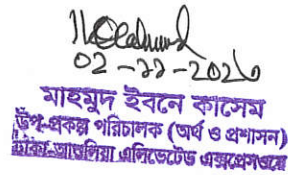 02-22-2026
মাহমুদ ইবনে কাসেম
উপ-প্রকল্প পরিচালক (অর্থ ও প্রশাসন)
ঢাকা-আশুলিয়া এলিভেটেড এক্সপ্রেসওয়ে